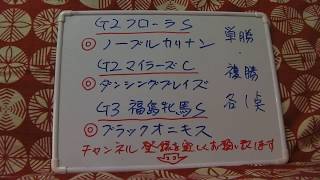 G2 フローラS
◎ ノーブルカリナン
G2 マイラーズC
◎ ダンシングブレイズ
G3 福島牝馬S
◎ ブラックオニキス
単勝
・
複勝
各1点
チャンネル登録を宜しくお願い致します